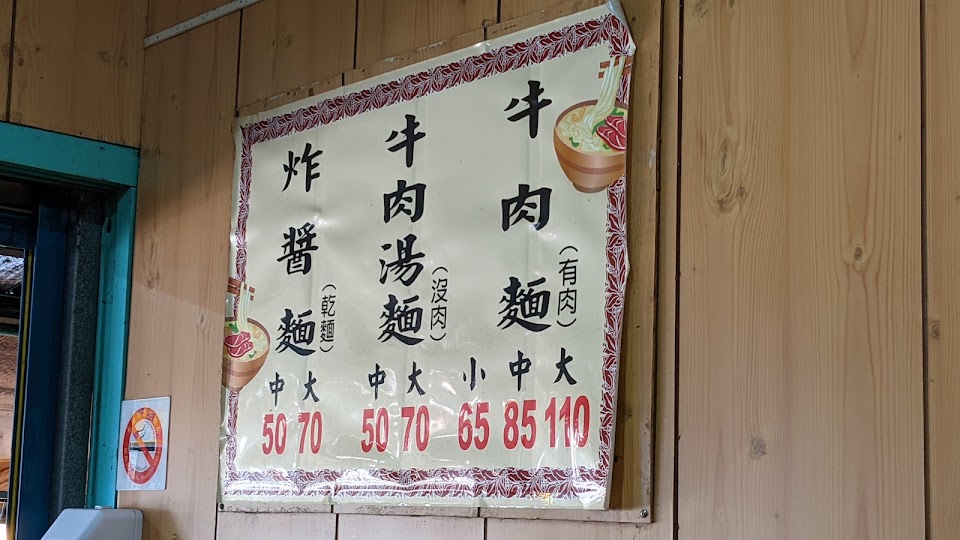 牛肉麵(有肉)
大 110
中 85
小 65
牛肉湯麵(沒肉)
大 70
中 50
炸醬麵(乾麵)
大 70
中 50